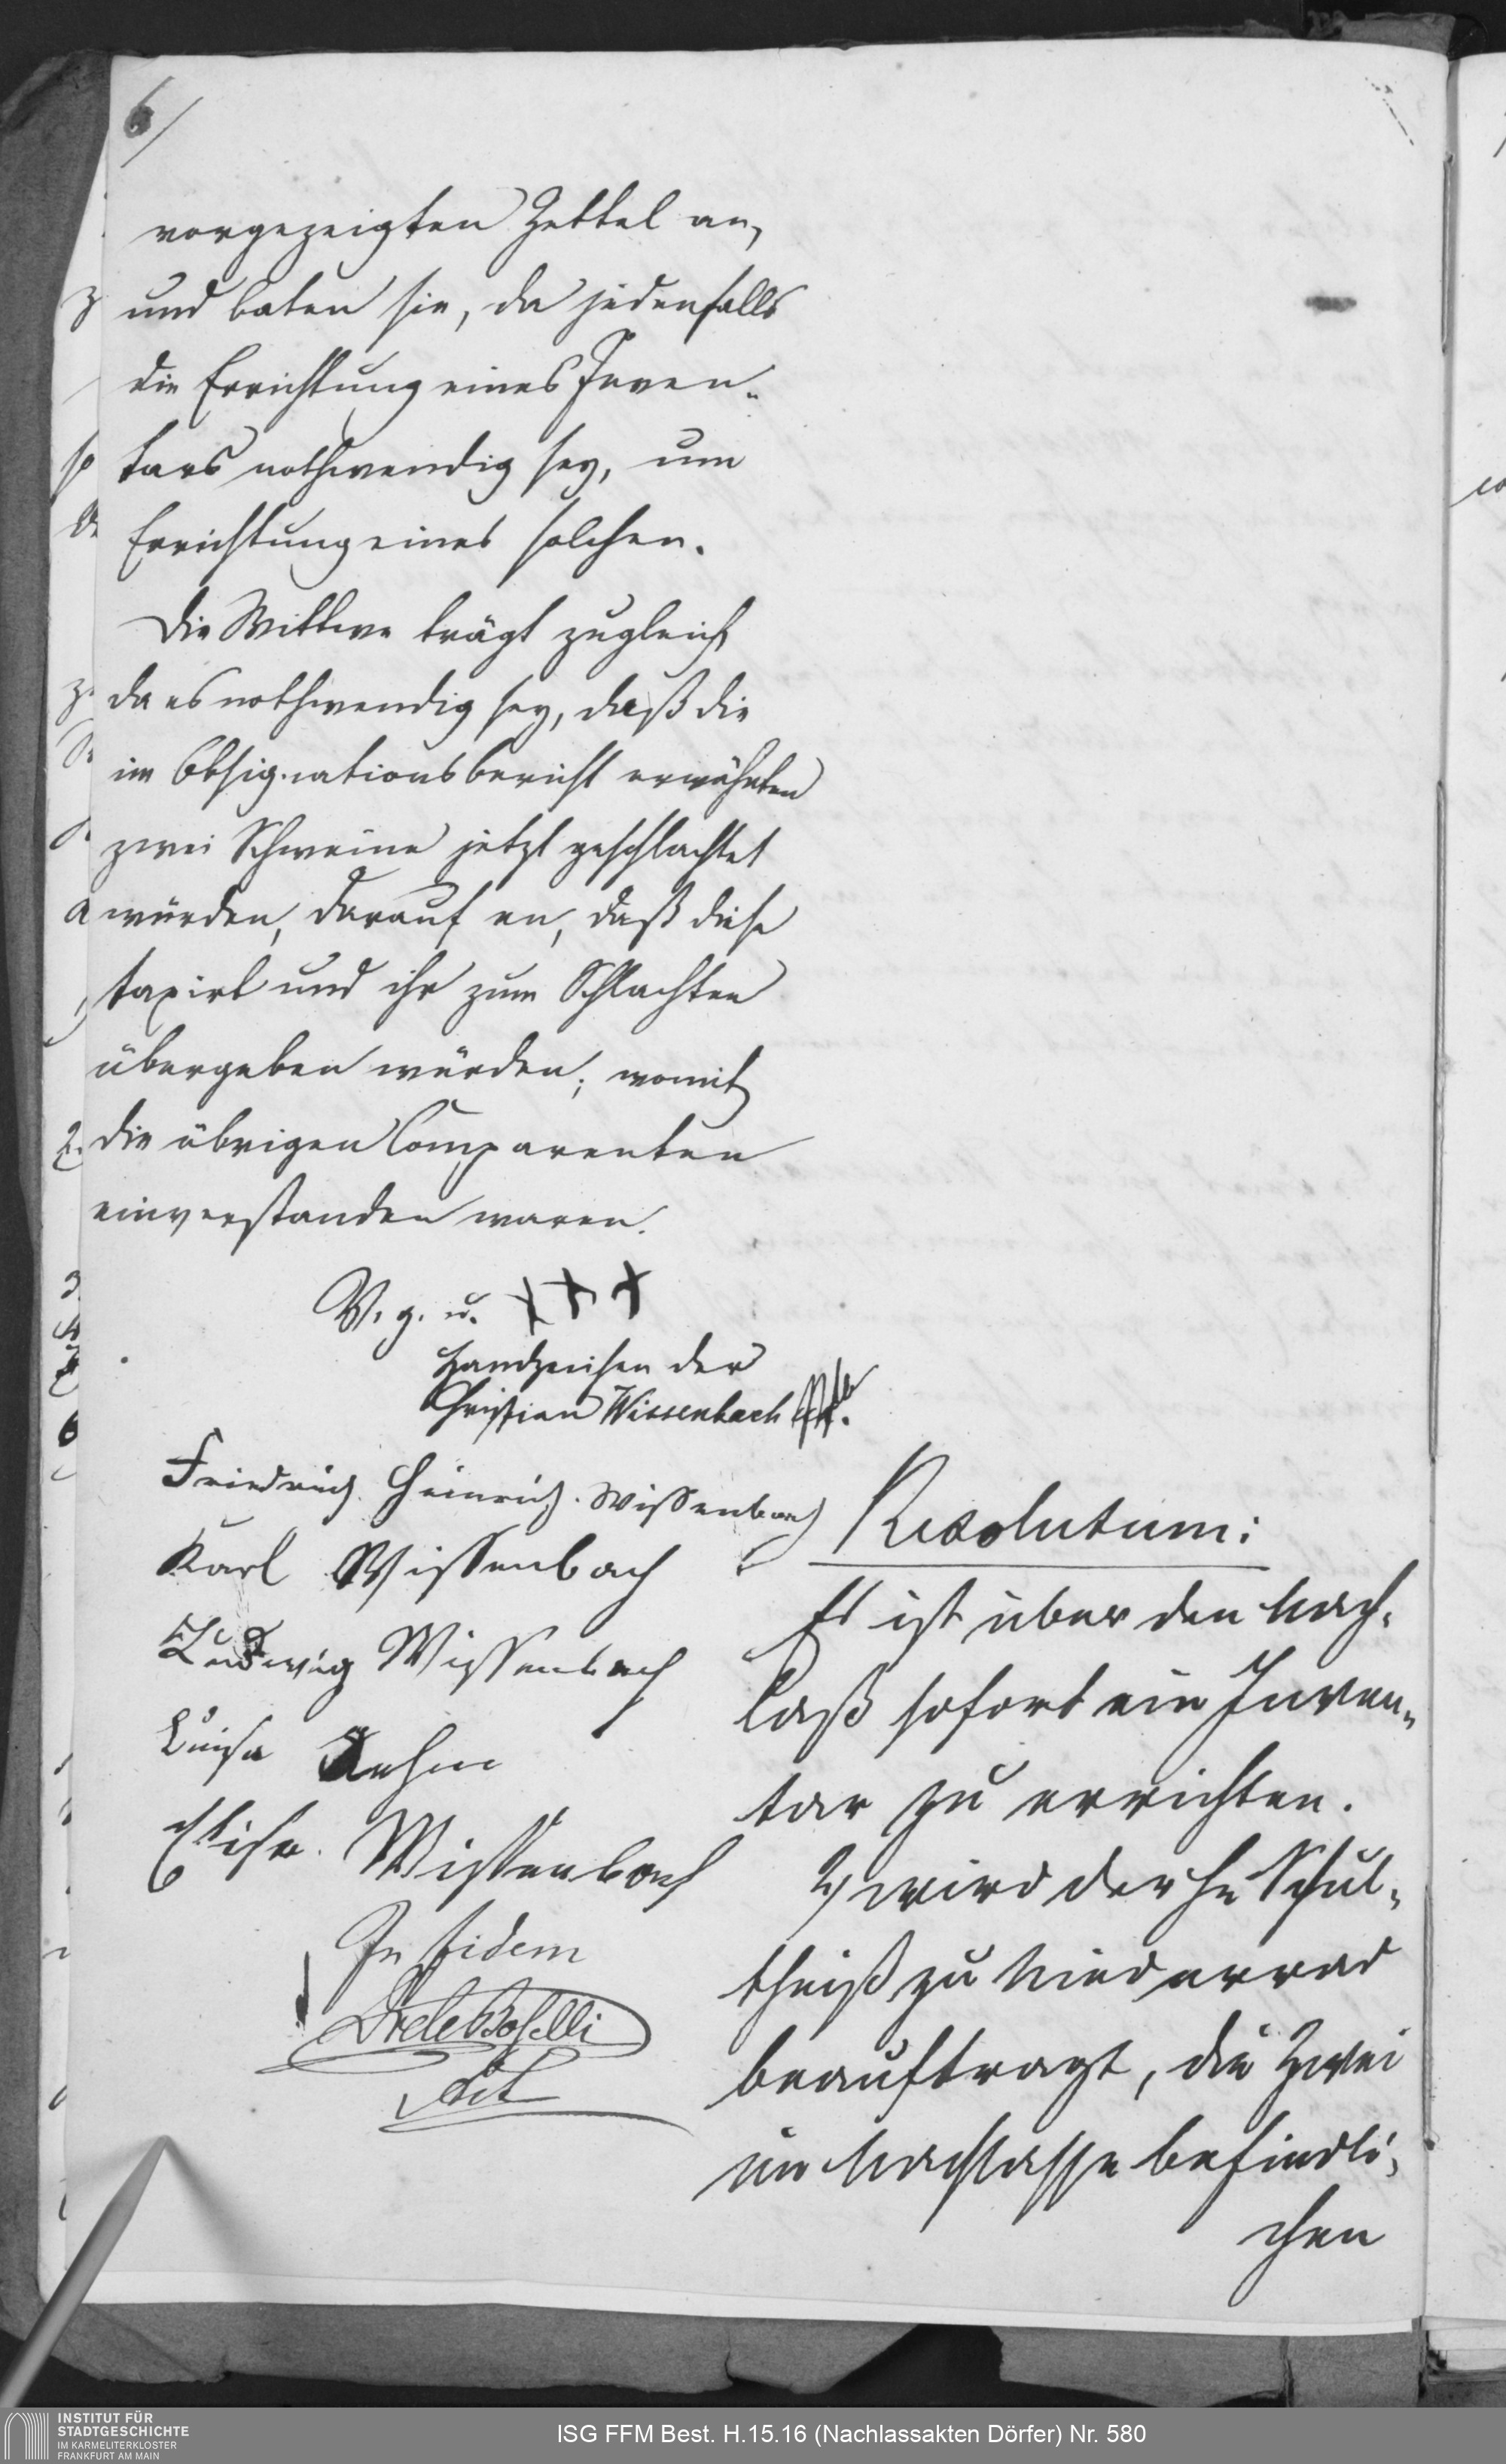 6/
vorgezeigten Zettel an,
und baten sie, da jedenfalls
die Errichtung eines Inven-
tars nothwendig sey, um
Errichtung eines solchen.
Die Wittwe trägt zugleich
da es nothwendig sey, daß die
im Obsignationsbericht erwähnten
zwei Schweine jetzt geschlachtet
würden, darauf an, daß diese
taxirt und ihr zum Schlachten
übergeben würden; womit
die übrigen Comparenten
einverstanden waren.
V. g. u. XXX
Handzeichen der
Christian Wissenbach
Friedrich Heinrich Wissenbach
Karl Wissenbach
Ludwig Wissenbach
Luise
Elise Wissenbach
In fidem
Act
Resolutum:
Es ist über den Nach-
laß sofort ein Inven-
tar zu errichten.
2, wird der Hr Schul-
theiß zu Niederrad
beauftragt, die zwei
im Nachlasse befindli-
chen
INSTITUT FÜR
STADTGESCHICHTE
IM KARMELITERKLOSTER
FRANKFURT AM MAIN
ISG FFM Best. H.15.16 (Nachlassakten Dörfer) Nr. 580